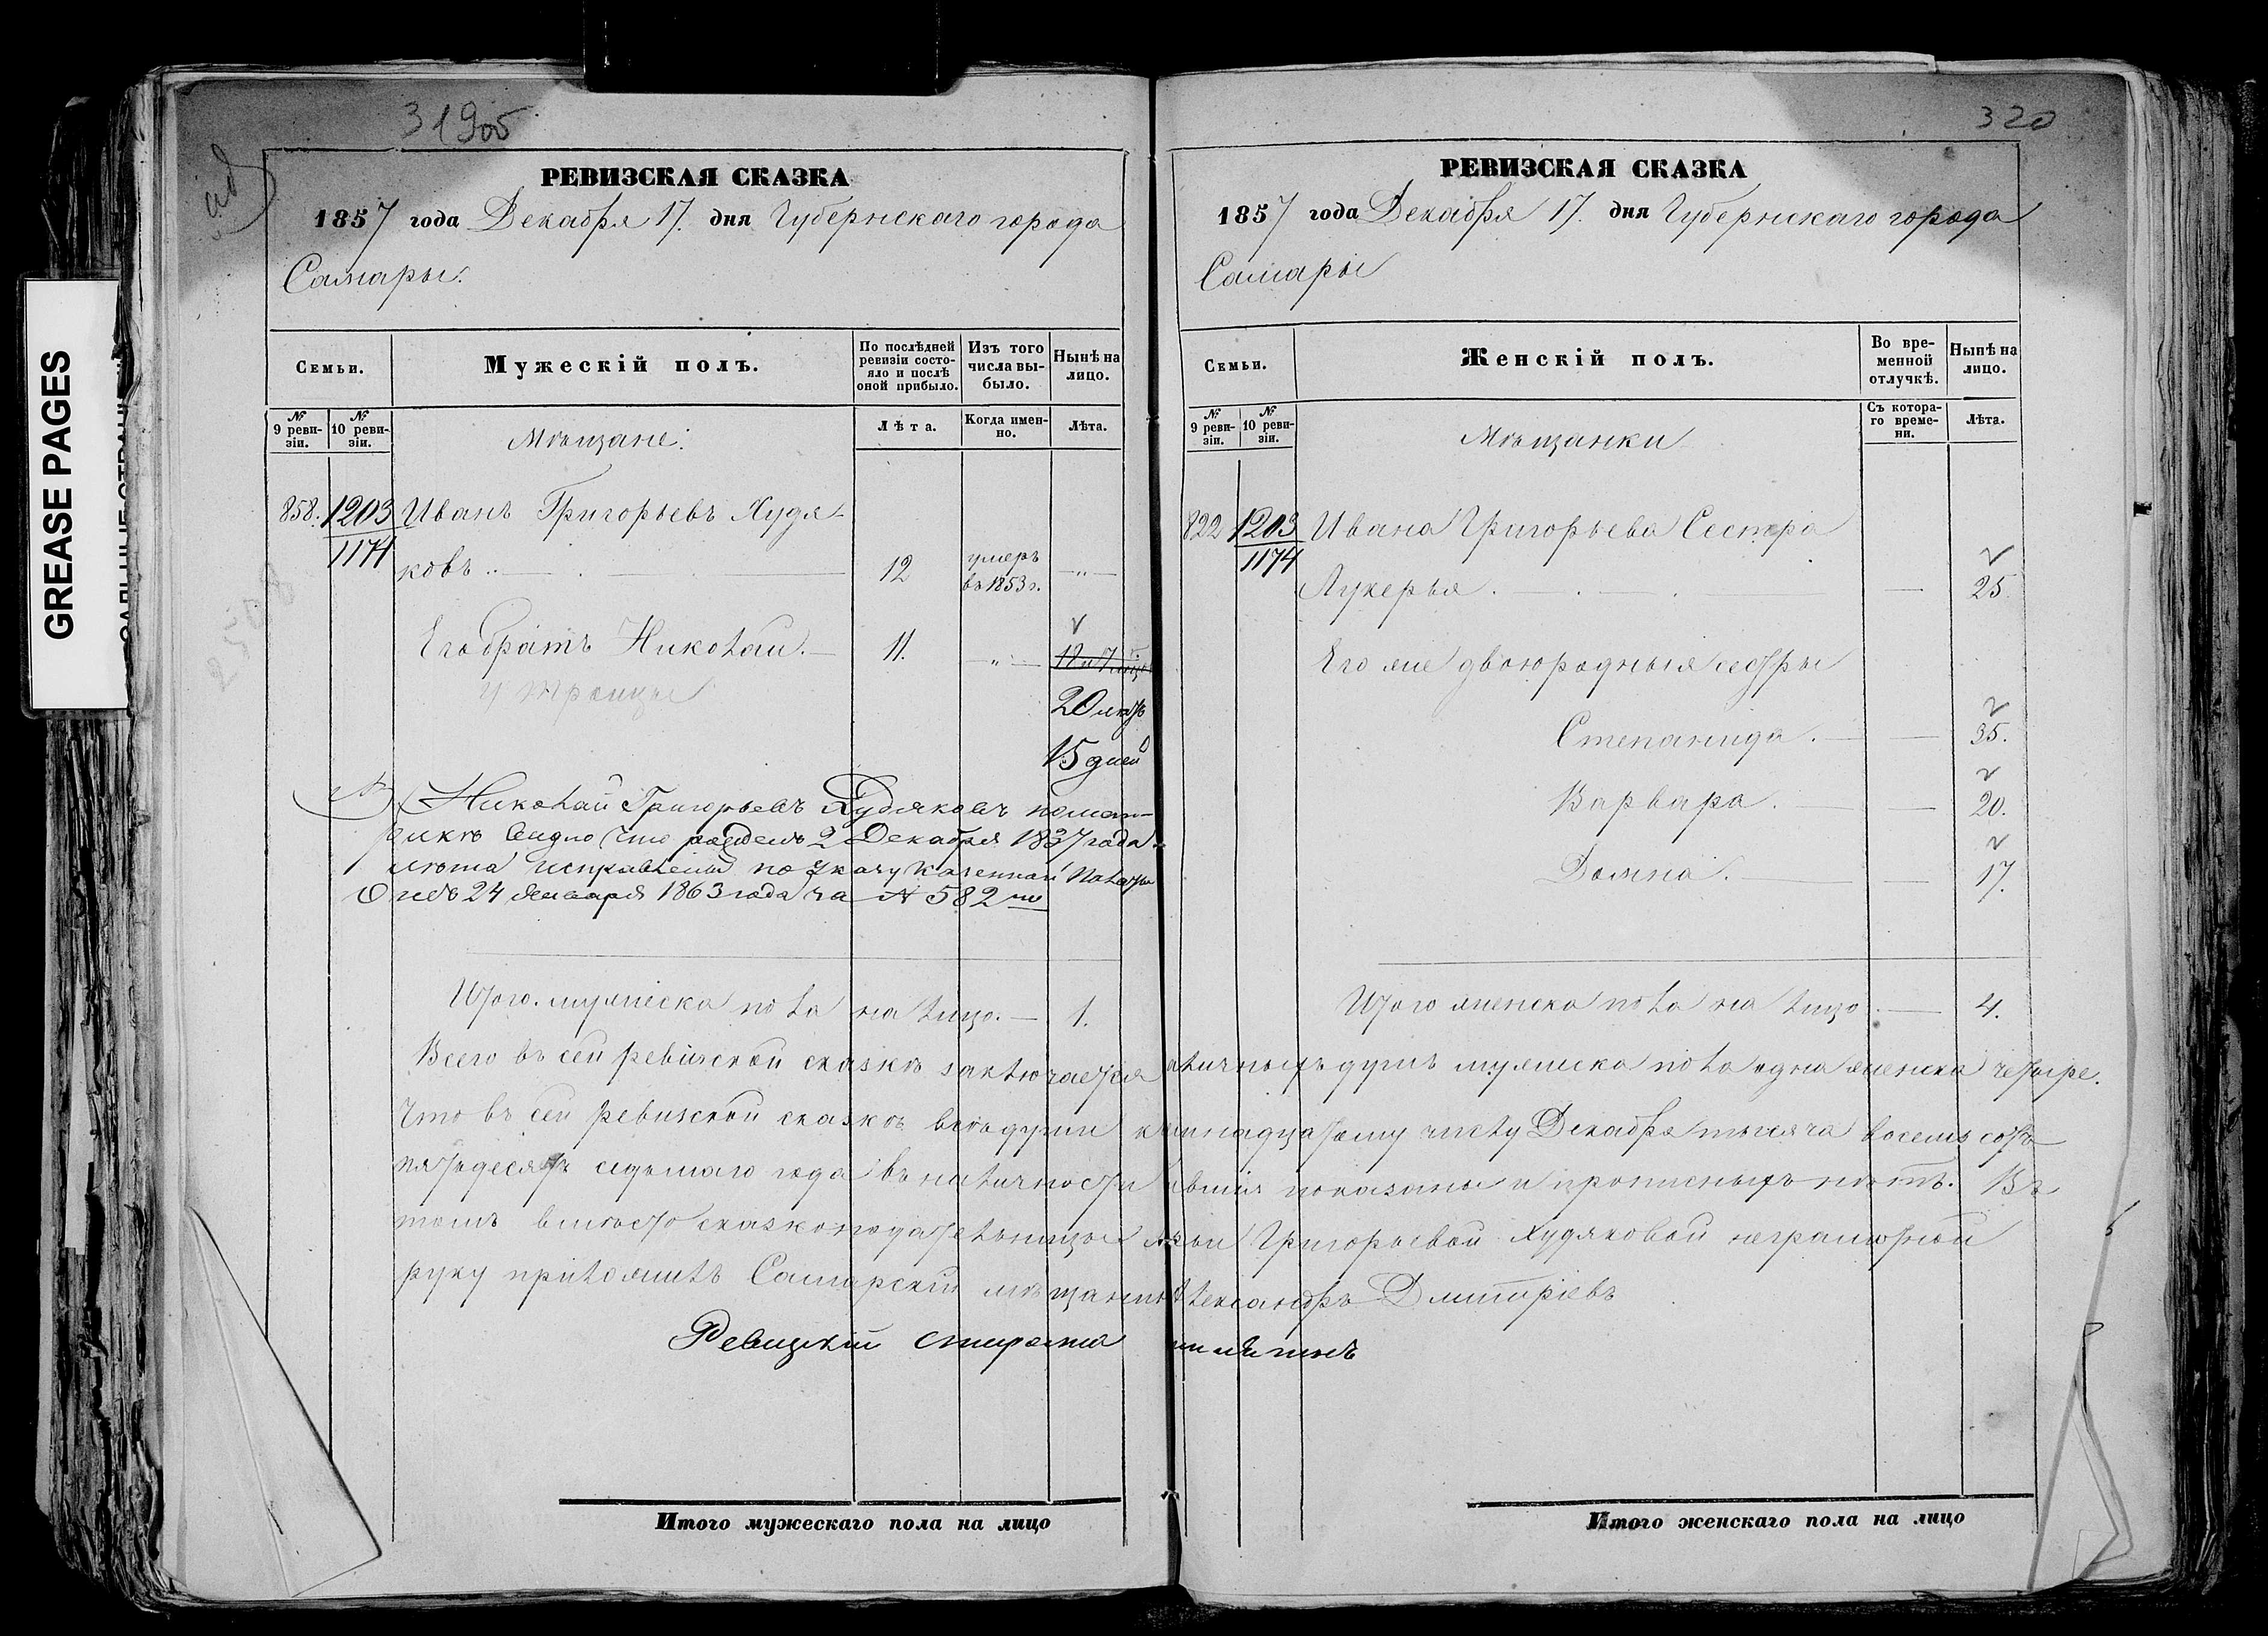 319об
РЕВИЗСКАЯ СКАЗКА
1857 года Декабря 17. дня Губернскаго города
Самары.
Семьи.
Мужескій полъ.
По послѣдней ревизіи состояло и послѣ оной прибыло.
Изъ того числа выбыло.
Нынѣ на лицо.
№ 9 ревизіи.
№ 10 ревизіи.
Мѣщане:
Лѣта.
Когда именно.
Лѣта.
858. 1203 Иванъ Григорьевъ Худя-
1174 ковъ 12 умеръ въ 1853 г. — „ —
Его братъ Николай. 11. — „ —
у троицы 20 лѣтъ
15 дней
Николай Григорьевъ Худяковъ по метрикѣ видно что рожденъ 2 Декабря 1837 года.
лѣта исправлены по указу Казенной Палаты
24 Января 1863 года за № 582
Итого мужеска пола на лицо. — 1.
320
РЕВИЗСКАЯ СКАЗКА
1857 года Декабря 17. дня Губернскаго города
Самары
Семьи.
Женскій полъ.
Во временной отлучкѣ.
Нынѣ на лицо.
№ 9 ревизіи.
№ 10 ревизіи.
Мѣщанки
Съ котораго времени.
Лѣта.
822 1203 Ивана Григорьева Сестра
1174 Лукерья. — 25.
Его же двоюродныя сестры
Степанида. — 35.
Варвара. — 20.
Домна. — 17.
Итого женска пола на лицо. — 4.
Всего въ сей ревизской сказкѣ заключается наличныхъ душъ мужеска пола одна женска четыре.
Что въ сей ревизской сказкѣ всѣ души къ семнадцатому числу Декабря тысяча восемь сотъ
пятьдесятъ седьмаго года въ наличности показаны и прописныхъ нѣтъ. Въ
томъ вмѣсто сказкоподательницы Григорьевой Худяковой неграмотной
руку приложилъ Самарскій мѣщанинъ Александръ Дмитріевъ
Ревизскій староста
Итого мужескаго пола на лицо
Итого женскаго пола на лицо
GREASE PAGES